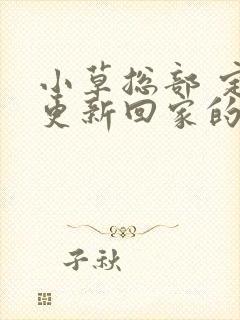 小草总部 定
更新回家的
子秋